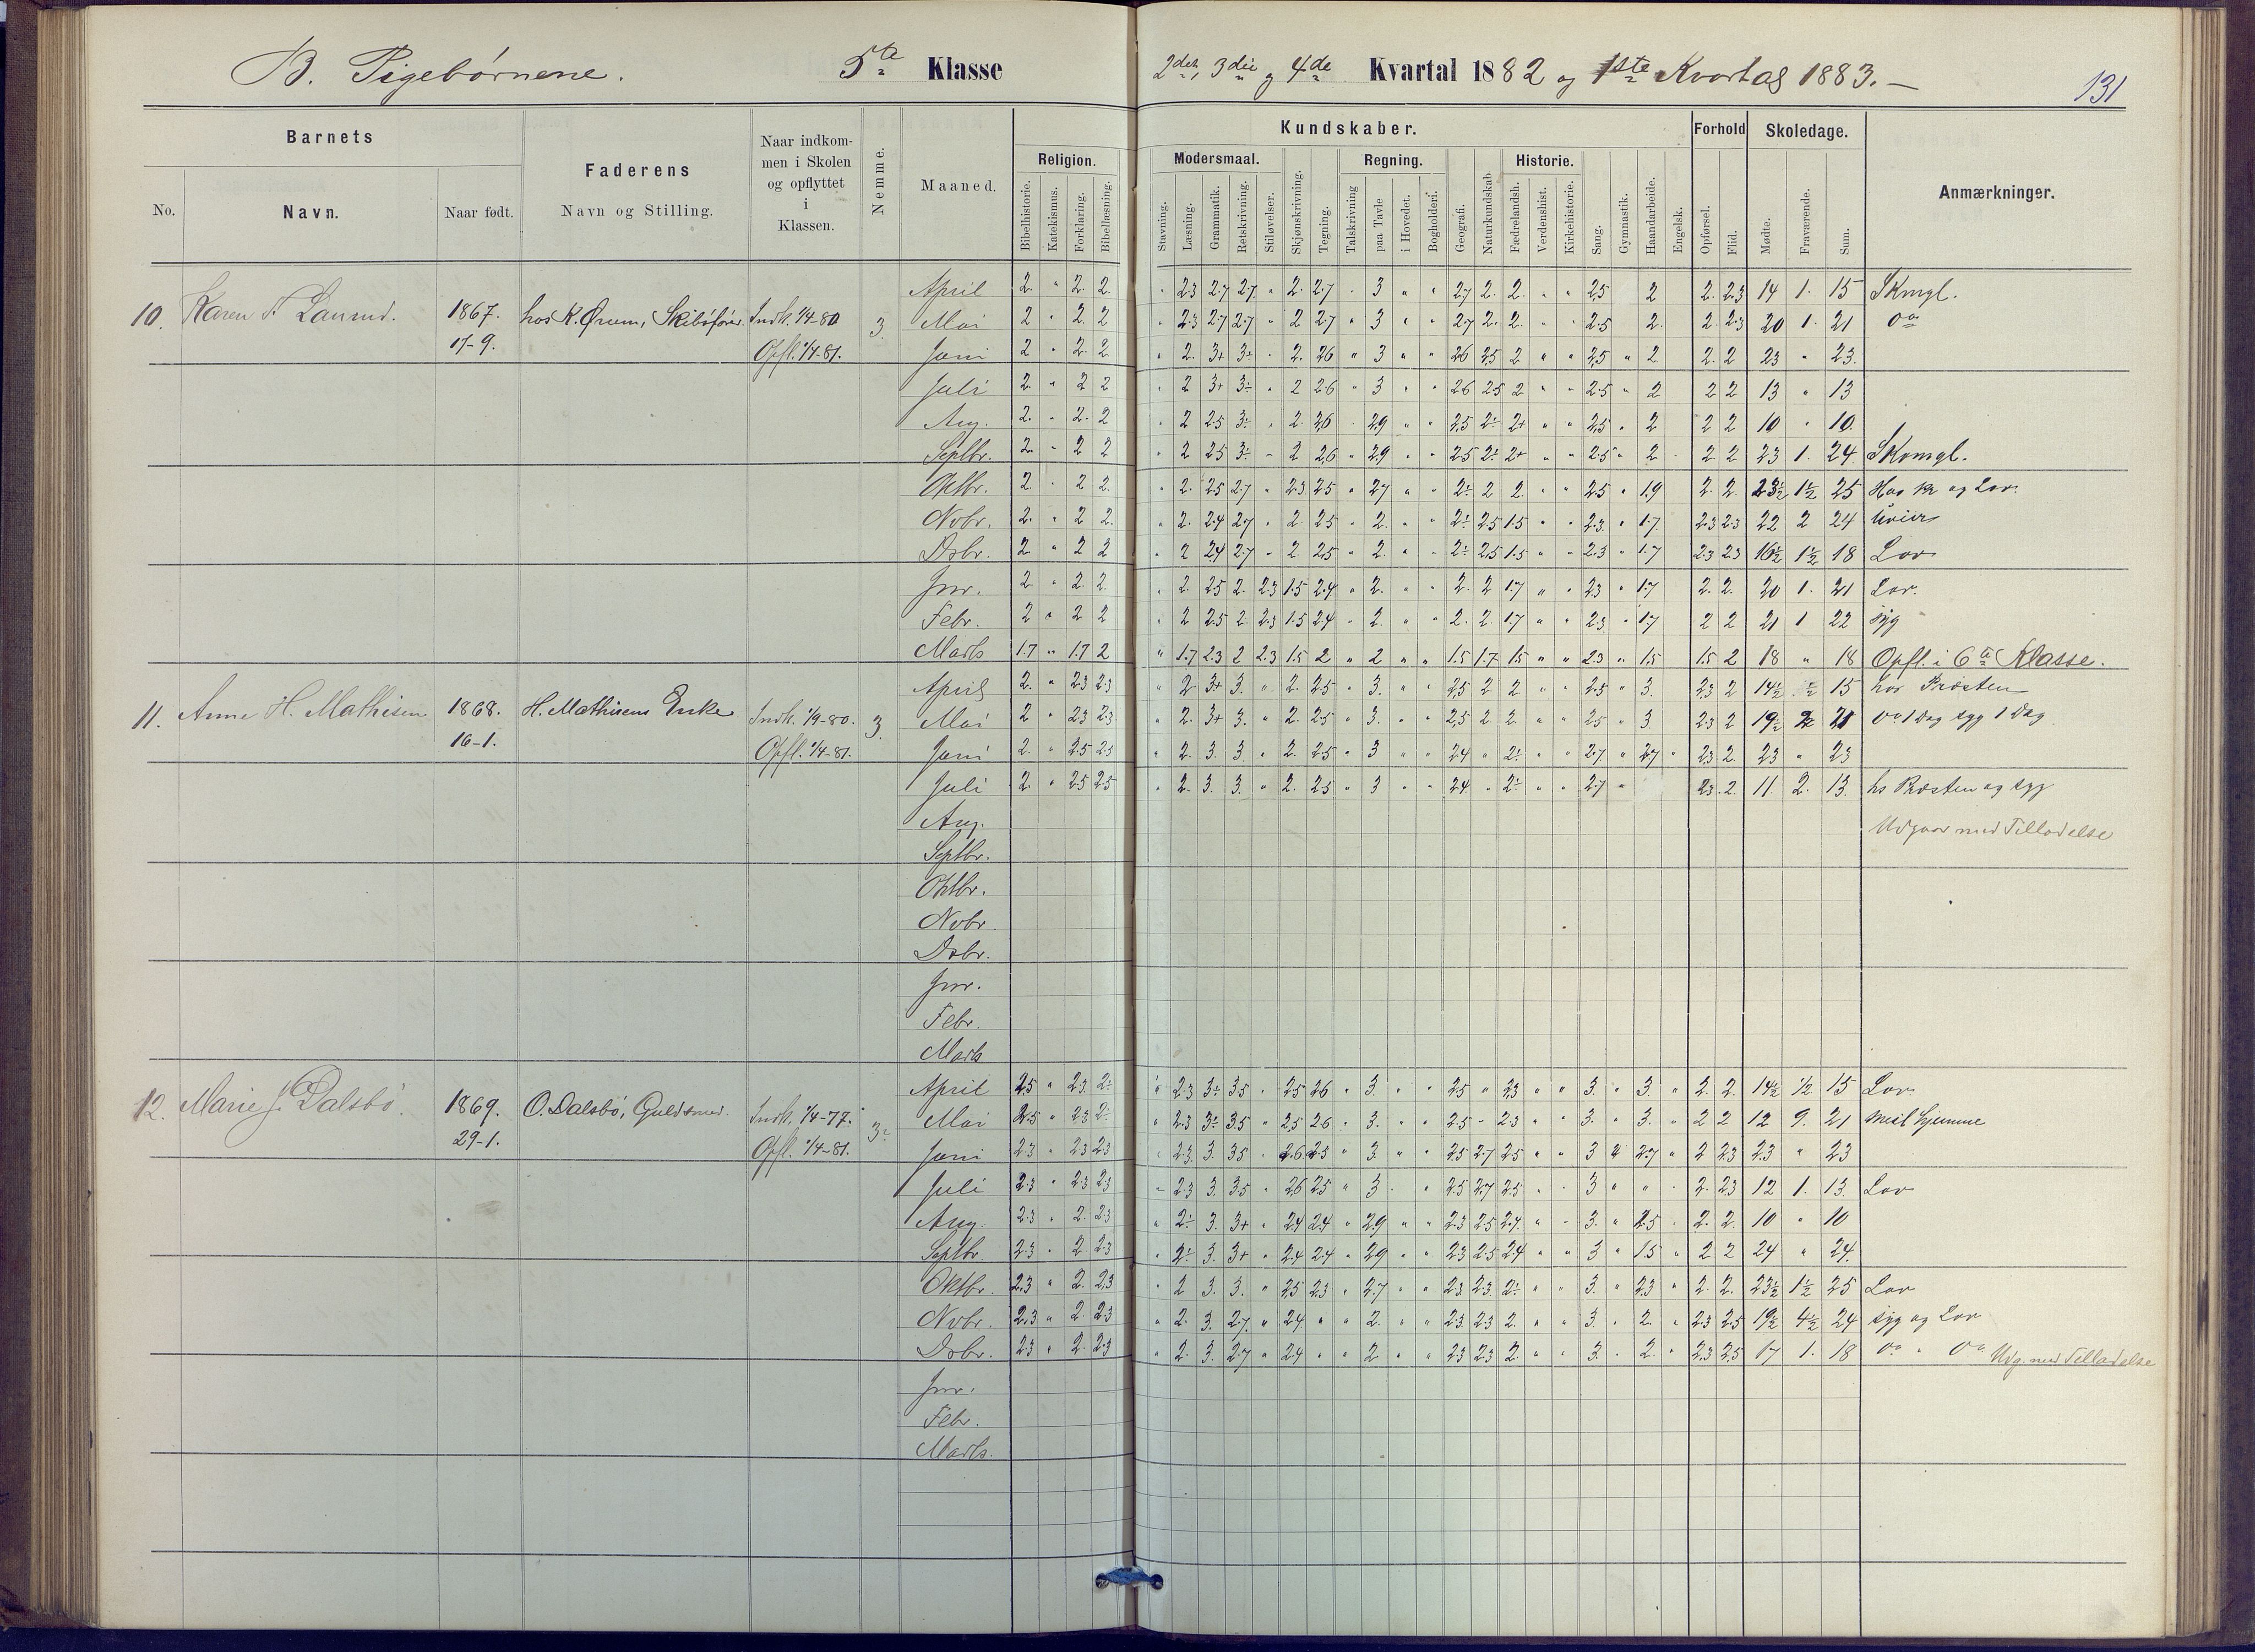 B. Pigebørnene. 5te Klasse 2det, 3die og 4de Kvartal 1882 og 1ste Kvartal 1883. —
131
Barnets
No.
Navn.
Naar født.
Faderens
Navn og Stilling.
Naar indkom-
men i Skolen
og opflyttet
i
Klassen.
Nemme.
Maaned.
Kundskaber.
Religion.
Bibelhistorie.
Katekismus.
Forklaring.
Bibellæsning.
Modersmaal.
Stavning.
Læsning.
Grammatik.
Retskrivning.
Stiløvelser.
Skjønskrivning.
Tegning.
Regning.
Talskrivning
paa Tavle
i Hovedet.
Bogholderi.
Geografi.
Naturkundskab
Historie.
Fædrelandsh.
Verdenshist.
Kirkehistorie.
Sang.
Gymnastik.
Haandarbeide.
Engelsk.
Forhold
Opførsel.
Flid.
Skoledage.
Mødte.
Fraværende.
Sum.
Anmærkninger.
10. Karen 1867. 17-9. hos K. Ørum, Indk. 1/4-80 Opfl. 1/4-81. 3
April 2. " 2. 2. " 2.3 2.7 2.7 " 2. 2.7 " 3 " " 2.7 2. 2. " " 2.5 2 2. 2.3 14 1. 15 Skmgl.
Mai 2 " 2. 2 " 2.3 2.7 2.7 " 2 2.7 " 3 " " 2.7 2. 2. " " 2.5 2. 2. 2.3 20 1. 21 do
Juni 2 " 2. 2. " 2. 3+ 3÷ " 2. 2.6 " 3 " " 2.6 2.5 2 " " 2.5 " 2 2. 2 23 " 23.
Juli 2. " 2 2 " 2 3+ 3÷ " 2 2.6 " 3 " " 2.6 2.5 2 " " 2.5 " 2 2 2 13 " 13
Aug. 2. " 2. 2 " 2 2.5 3÷ " 2. 2.6 " 2.9 " " 2.5 2÷ 2+ " " 2.5 " 2 2 2 10 " 10.
Septbr. 2. " 2 2 " 2 2.5 3÷ " 2 2.6 " 2.9 " " 2.5 2÷ 2+ " " 2.5 " 2 2 2 23 1. 24 Skomgl.
Oktbr. 2. " 2 2. " 2. 2.5 2.7 " 2.3 2.5 " 2.7 " " 2÷ 2 2. " " 2.5 " 1.9 2. 2. 23½ 1½ 25
Novbr. 2. " 2 2. " 2. 2.4 2.7 " 2. 2.5 " 2. " " 2÷ 2.5 1.5 " " 2.3 " 1.7 2.3 2.3 22 2 24
Dsbr. 2 " 2 2 " 2 2.4 2.7 " 2. 2.5 " 2 " " 2÷ 2.5 1.5 " " 2.3 " 1.7 2.3 2.3 16½ 1½ 18 Lov
Jnr. 2 " 2. 2. " 2. 2.5 2. 2.3 1.5 2.4 " 2. " " 2. 2 1.7 " " 2.3 " 1.7 2. 2. 20 1. 21 Lov.
Febr. 2 " 2 2 " 2 2.5 2. 2.3 1.5 2.4 " 2. " " 2. 2. 1.7 " " 2.3 " 1.7 2 2 21 1 22 syg
Marts 1.7 " 1.7 2 " 1.7 2.3 2 2.3 1.5 2 " 2 " " 1.5 1.7 1.5 " " 2.3 " 1.5 1.5 2 18 " 18 Opfl. i 6te Klasse.
11. Anne H. Mathisen 1868. 16-1. H. Mathisens Enke Indk. 1/9-80. Opfl. 1/4-81. 3.
April 2. " 2.3 2.3 " 2 3+ 3. " 2. 2.5 " 3. " " 2.5 2 2 " " 2.5 " 3. 2.3 2 14½ ½ 15 hos Præsten
Mai 2 " 2.3 2.3 " 2. 3+ 3. " 2. 2.5 " 3. " " 2.5 2. 2. " " 2.5 " 3. 2.3 2 19½ 2 21 do 1 Dag syg 1 Dag
Juni 2. " 2.5 2.5 " 2. 3. 3. " 2. 2.5 " 3 " " 2.4 " 2÷ " " 2.7 " 2.7 " 2.3 2. 23 " 23
Juli 2. " 2.5 2.5 " 2. 3. 3. " 2. 2.5 " 3 " " 2.4 " 2÷ " " 2.7 " 2.3 2. 11. 2. 13. hs Præsten og syg
Aug. Udgaar med Tilladelse
Septbr.
Oktbr.
Novbr.
Dsbr.
Jnr.
Febr.
Marts
12. Marie J. Dalsbø. 1869. 29-1. O. Dalsbø, Guldsmed. Indk. 1/4-77. Opfl. 1/4-81. 3÷
April 2.5 " 2.3 2÷ " 2.3 3÷ 3.5 " 2.5 2.6 " 3. " " 2.5 " 2.3 " " 3. " 3. " 2. 2. 14½ 1/2 15 Lov
Mai 2.5 " 2.3 2÷ " 2.3 3÷ 3.5 " 2.5 2.6 " 3. " " 2.5 " 2.3 " " 3. " 3. " 2 2 12 9. 21 hjemme
Juni 2.3 " 2.3 2.3 " 2.3 3. 3.5 " 2.6 2.5 " 3. " " 2.5 2.7 2.5 " " 3 " 2.7 " 2 2.3 23 " 23
Juli 2.3 " 2.3 2.3 " 2.3 3. 3.5 " 2.6 2.5 " 3. " " 2.5 2.7 2.5 " " 3 " " " 2. 2.3 12 1. 13. Lov
Aug. 2.3 " 2. 2.3 " 2÷ 3. 3+ " 2.4 2.4 " 2.9 " " 2.3 2.5 2.4 " " 3. " 2.5 " 2. 2. 10 " 10
Septbr. 2.3 " 2. 2.3 " 2÷ 3. 3+ " 2.4 2.4 " 2.9 " " 2.3 2.5 2.4 " " 3 " 1.5 " 2 2 24 " 24.
Oktbr. 2.3 " 2. 2.3 " 2 3. 3. " 2.5 2.3 " 2.7 " " 2.3 2.3 2÷ " " 3. " 2.3 " 2. 2. 23½ 1½ 25 Lov
Novbr. 2.3 " 2. 2.3 " 2. 3. 2.7 " 2.4 " " 2. " " 2.3 2.3 2. " " 3. " 2. " 2.3 2.5 19½ 4½ 24 syg og Lov
Dsbr. 2.3 " 2. 2.3 " 2. 3. 2.7 " 2.4 " " 2 " " 2.3 2.3 2. " " 3. " 2. " 2.3 2.5 17 1. 18 do " do Udg. med Tilladelse
Jnr.
Febr.
Marts.